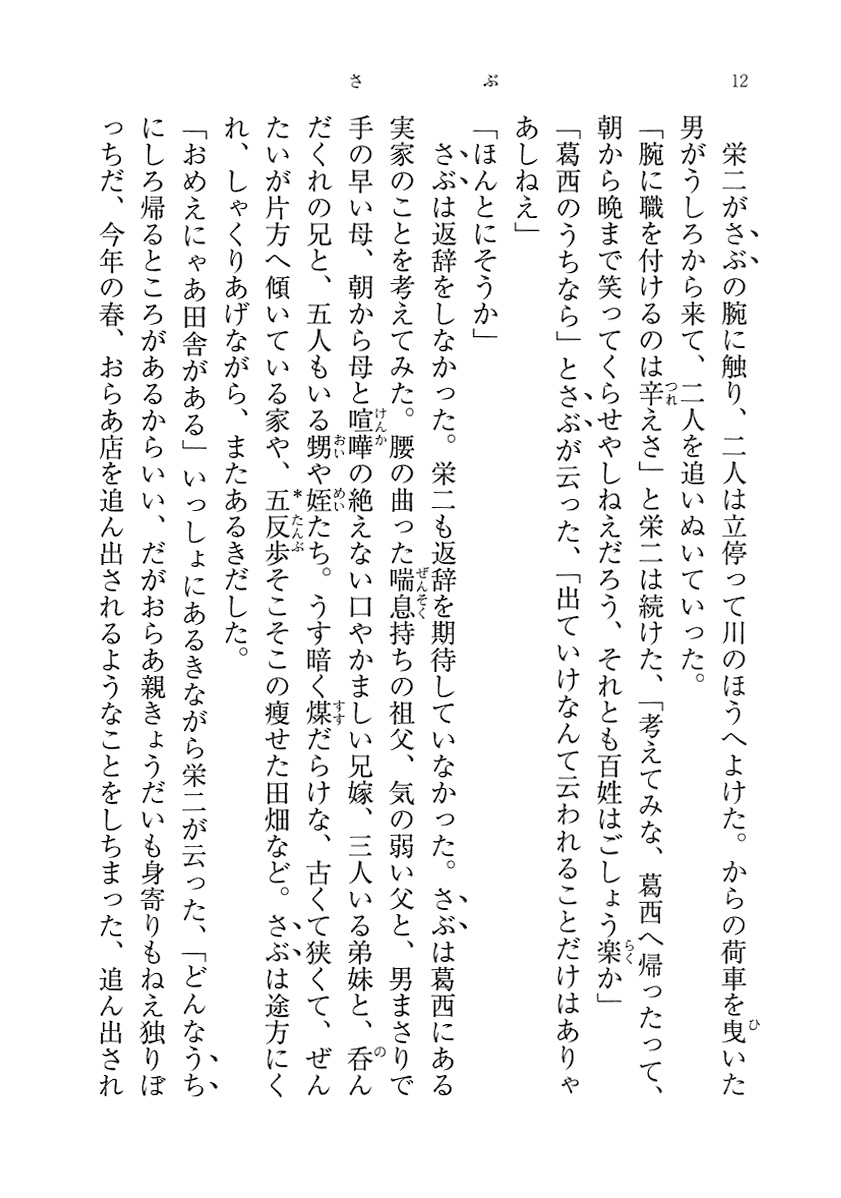 12
さぶ
栄二がさぶの腕に触り、二人は立停って川のほうへよけた。からの荷車を曳いた
男がうしろから来て、二人を追いぬいていった。
「腕に職を付けるのは辛えさ」と栄二は続けた、「考えてみな、葛西へ帰ったって、
朝から晩まで笑ってくらせやしねえだろう、それとも百姓はごしょう楽か」
「葛西のうちなら」とさぶが云った、「出ていけなんて云われることだけはありゃ
あしねえ」
「ほんとにそうか」
さぶは返辞をしなかった。栄二も返辞を期待していなかった。さぶは葛西にある
実家のことを考えてみた。腰の曲った喘息持ちの祖父、気の弱い父と、男まさりで
手の早い母、朝から母と喧嘩の絶えない口やかましい兄嫁、三人いる弟妹と、呑ん
だくれの兄と、五人もいる甥や姪たち。うす暗く煤だらけな、古くて狭くて、ぜん
たいが片方へ傾いている家や、*五反歩そこそこの瘦せた田畑など。さぶは途方にく
れ、しゃくりあげながら、またあるきだした。
「おめえにゃあ田舎がある」いっしょにあるきながら栄二が云った、「どんなうち
にしろ帰るところがあるからいい、だがおらあ親きょうだいも身寄りもねえ独りぼ
っちだ、今年の春、おらあ店を追ん出されるようなことをしちまった、追ん出され